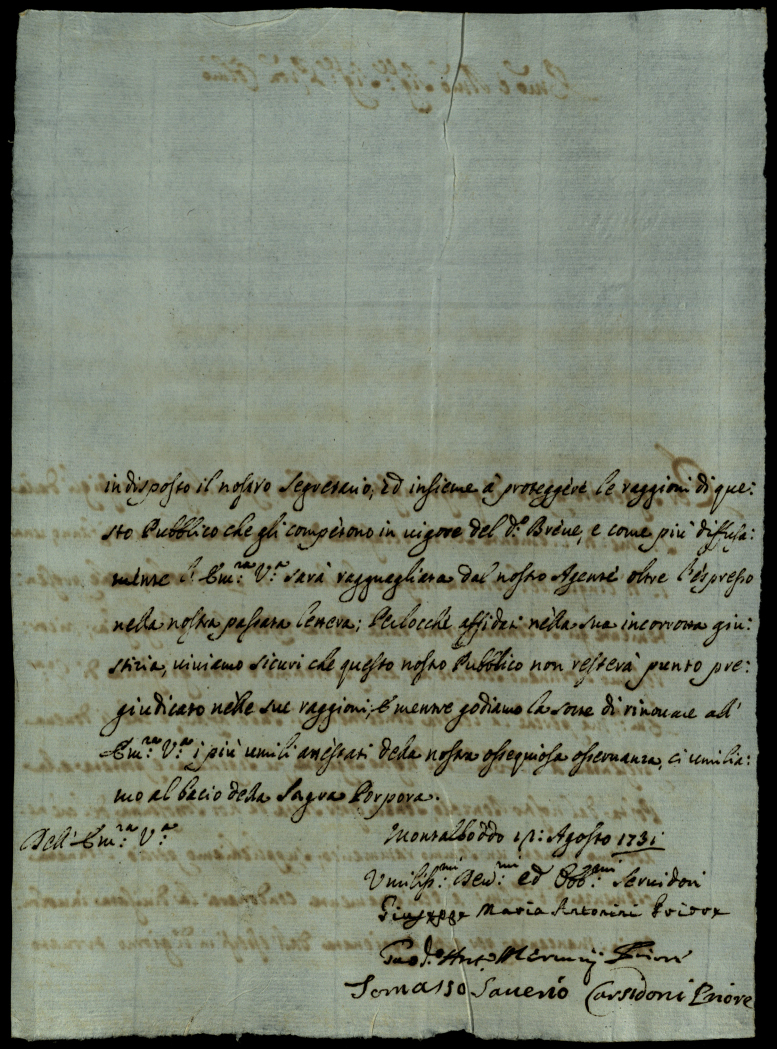 indisposto il nostro Segretario, ed insieme à proteggere le raggioni di que:
sto Pubblico che gli competono in vigore del d.º Breve, e come più diffusa:
mente l' Em.ra V.ra sarà ragguagliata dal nostro Agente oltre l'espresso
nella nostra passata lettera; Perlocchè affidati nella sua incorrotta giu:
stizia, viviamo sicuri che questo nostro Pubblico non resterà punto pre:
giudicato nelle sue raggioni; E mentre godiamo la sorte di rinovare all'
Em.ra V.ra i più umili attestati della nostra ossequiosa osservanza, ci umilia:
mo al bacio della Sagra Porpora.
Dell' Em.ra V.ra
Montalboddo Agosto 1731
Umiliss.mi Dev.mi ed Obb.mi Servidori
Giuseppe Maria Antonini Priore
Priore
Tomasso Saverio Carsidoni Priore